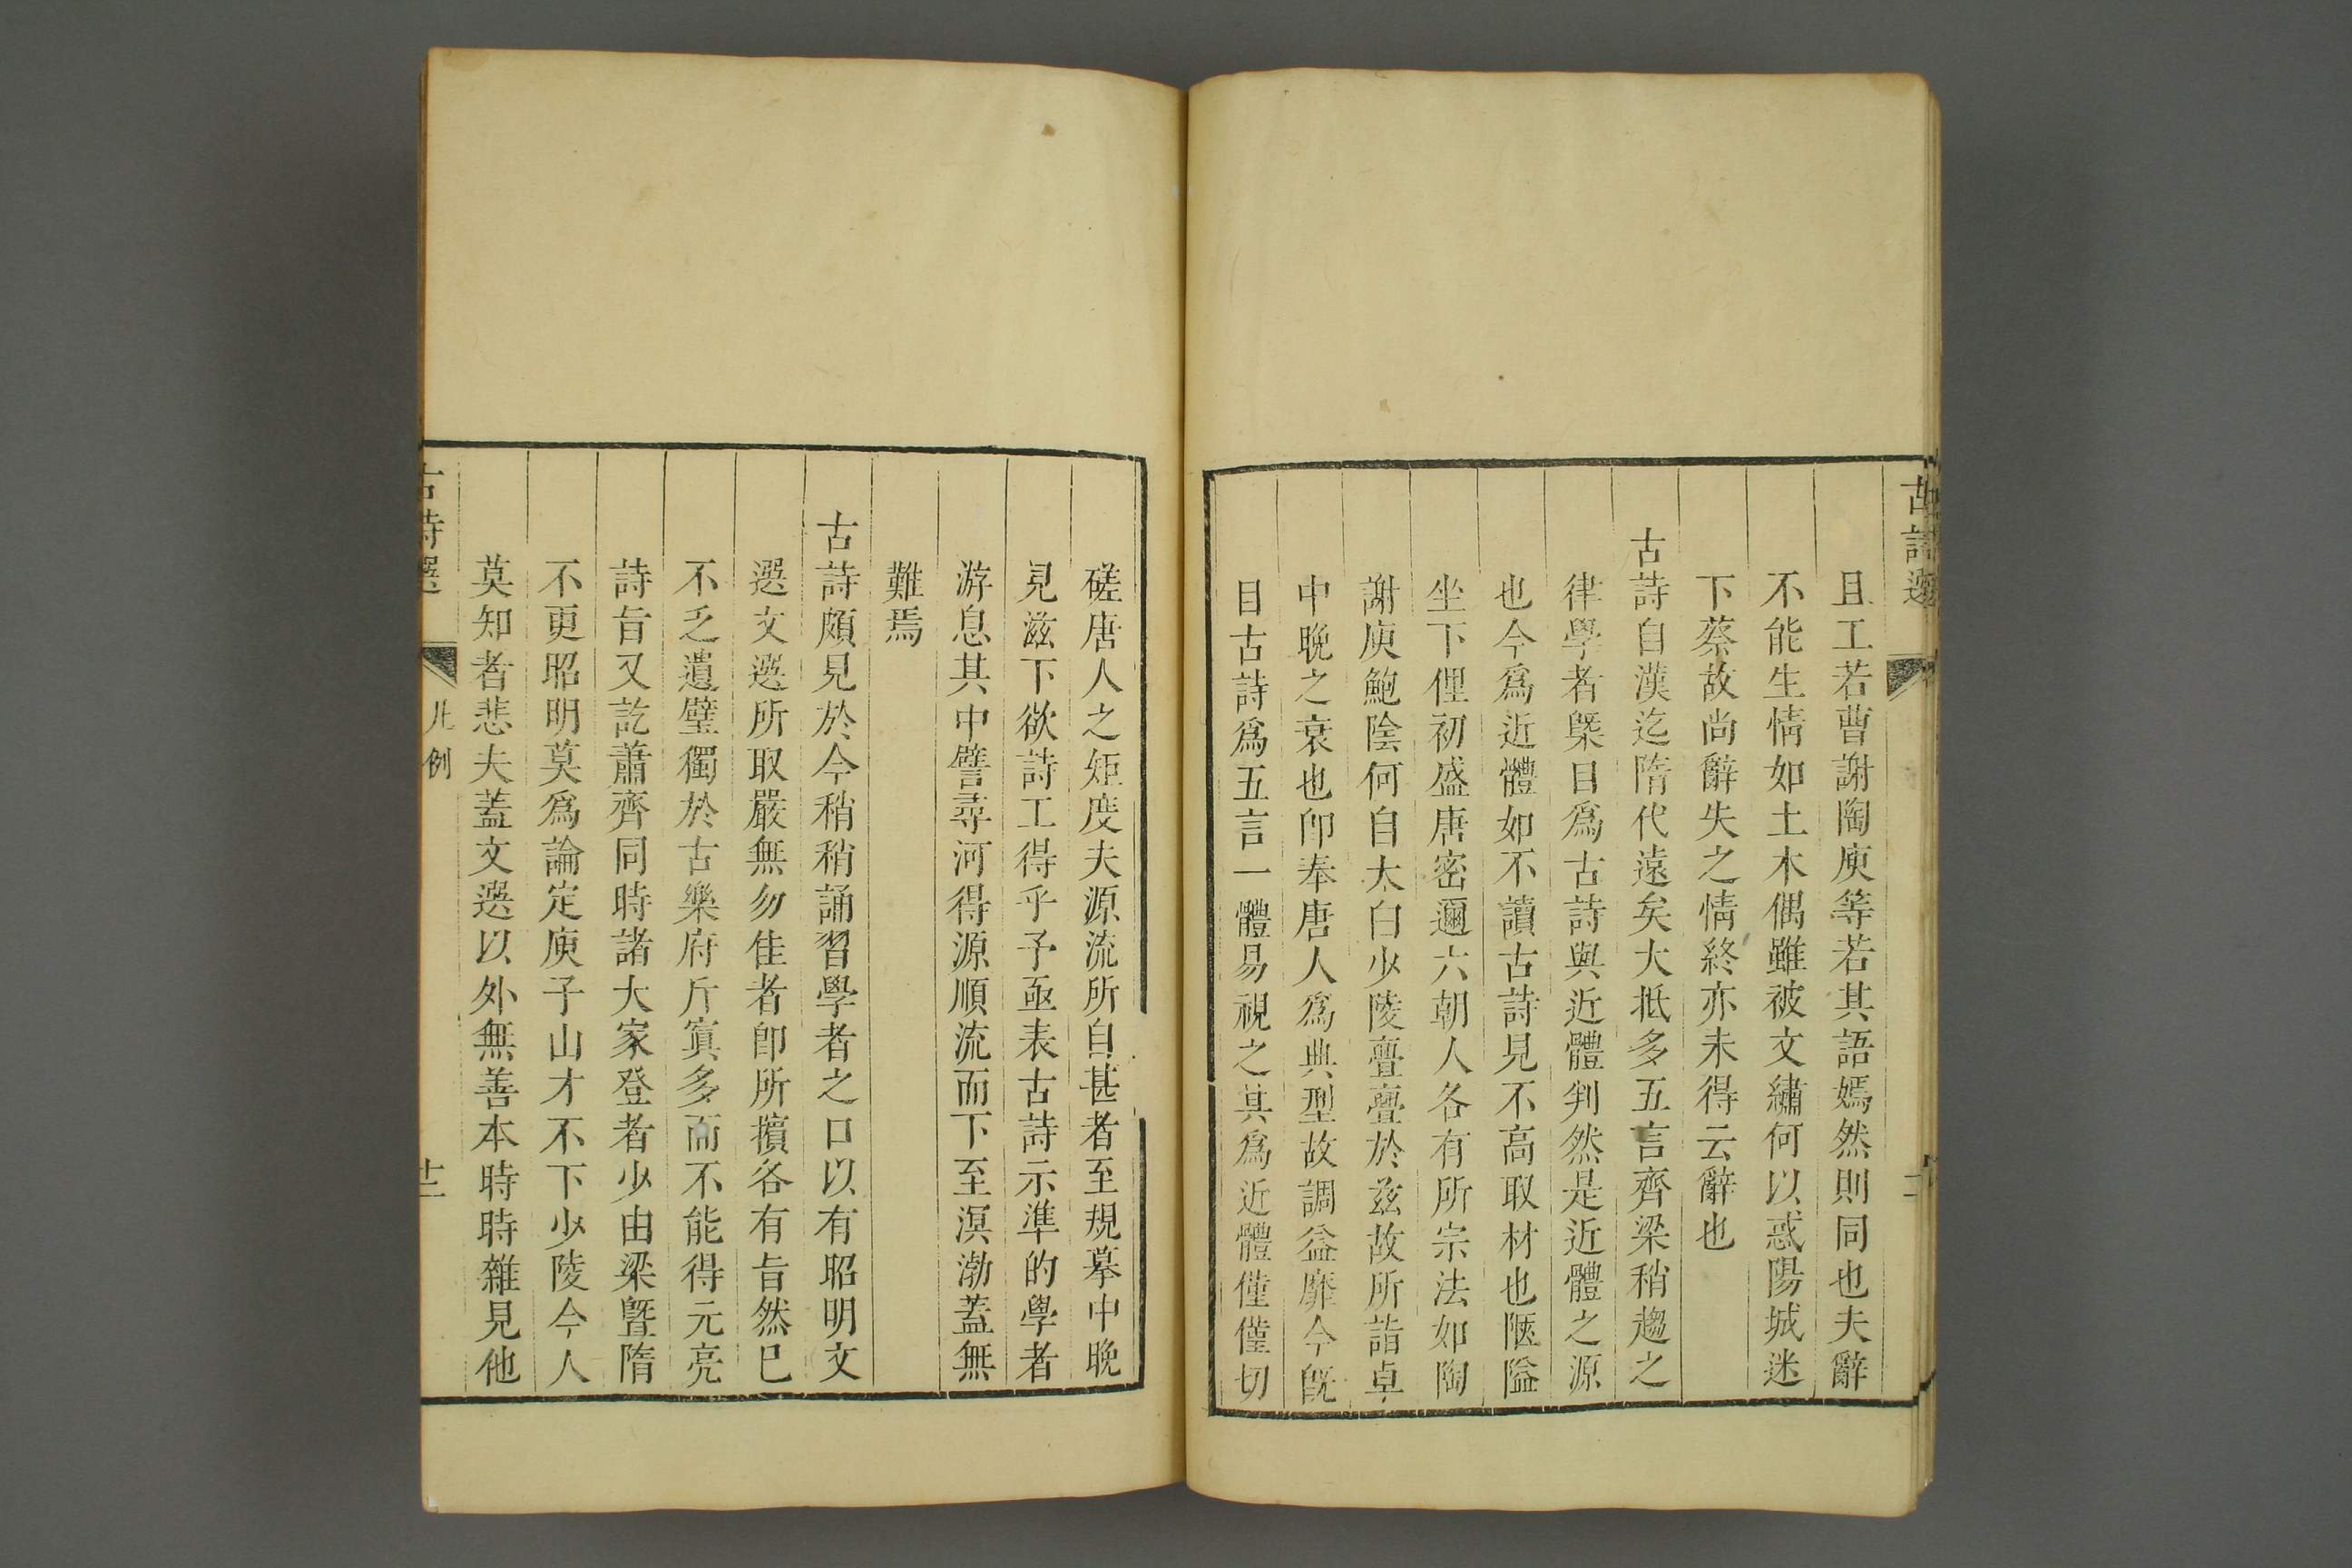 古詩選
且工若曹謝陶庾等若其語嫣然則同也夫辭
不能生情如土木偶雖被文繡何以惑陽城迷
下蔡故尚辭失之情終亦未得云辭也
古詩自漢迄隋代遠矣大抵多五言齊梁稍趨之
律學者槩目爲古詩與近體判然是近體之源
也今爲近體如不讀古詩見不高取材也陋隘
坐下俚初盛唐密邇六朝人各有所宗法如陶
謝庾鮑陰何自太白少陵亹亹於茲故所詣卓
中晚之衰也卽奉唐人爲典型故調益靡今旣
目古詩爲五言一體易視之其爲近體僅僅切
磋唐人之矩度夫源流所自甚者至規摹中晚
見滋下欲詩工得乎予亟表古詩示準的學者
游息其中譬尋河得源順流而下至溟渤蓋無
難焉
古詩頗見於今稍稍誦習學者之口以有昭明文
選文選所取嚴無勿佳者卽所擯各有旨然已
不乏遺璧獨於古樂府斤寘多而不能得元亮
詩旨又訖蕭齊同時諸大家登者少由梁曁隋
不更昭明莫爲論定庾子山才不下少陵今人
莫知者悲夫蓋文選以外無善本時時雜見他
古詩選
凡例
十二